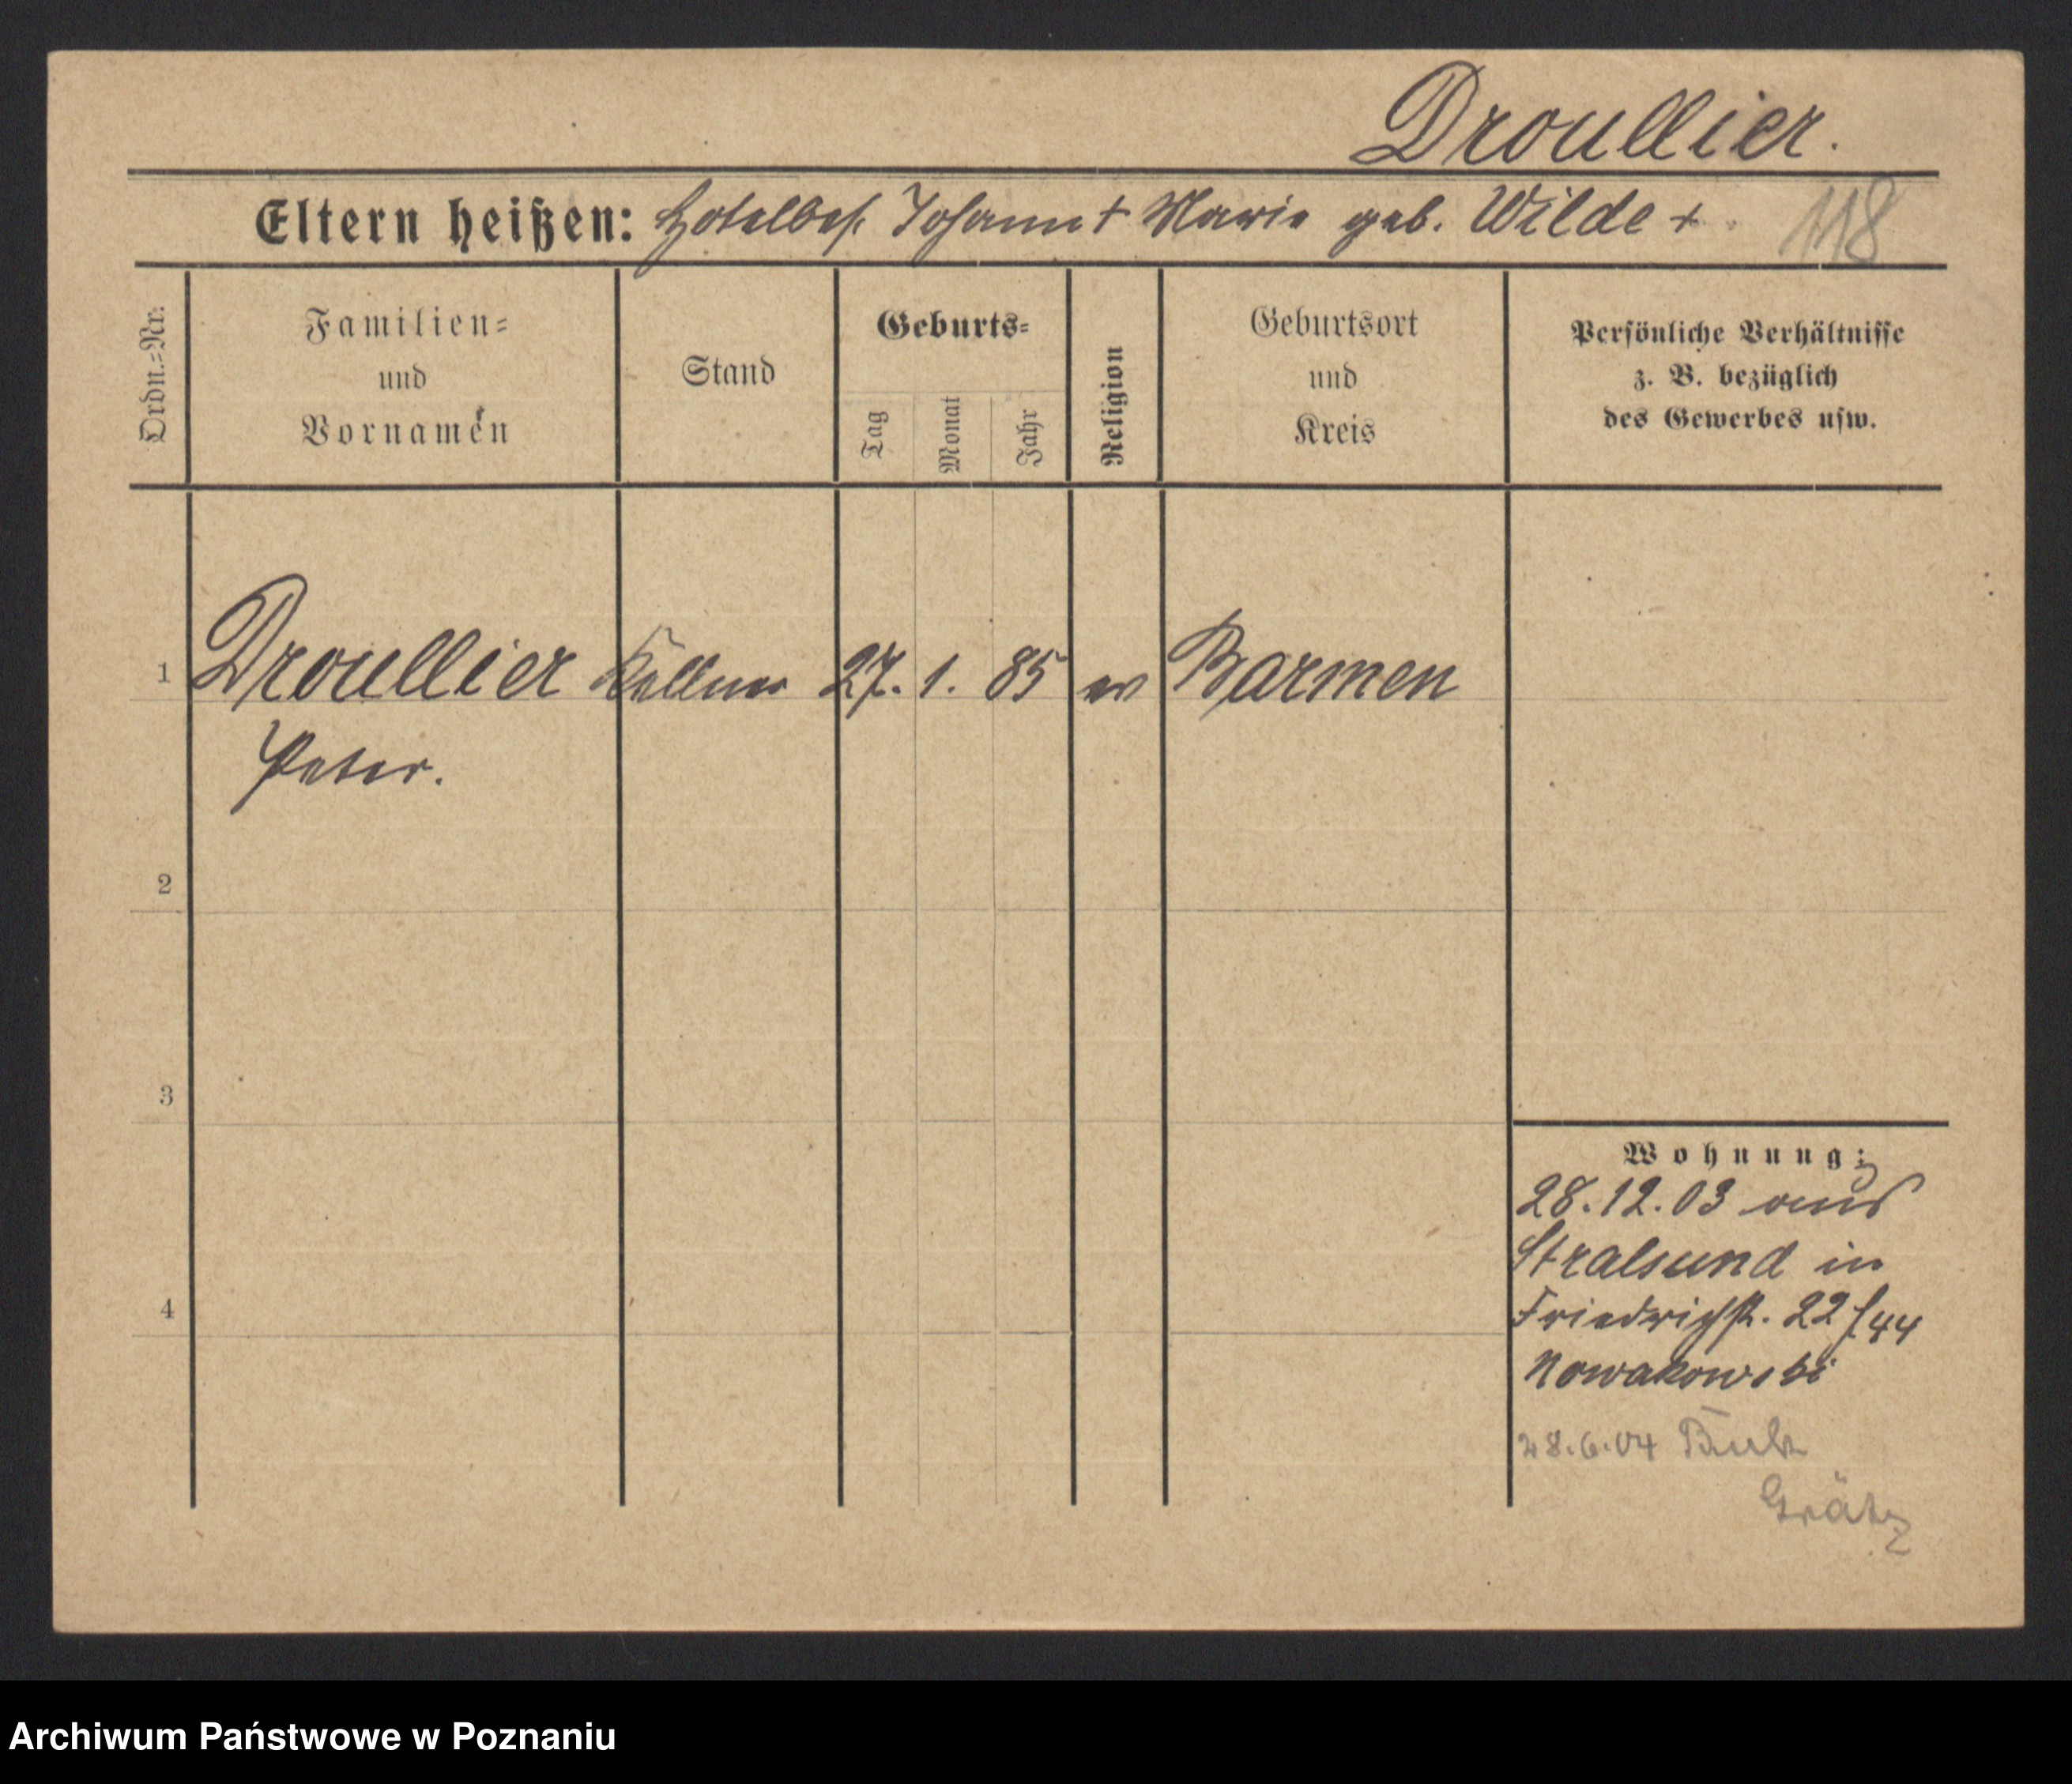 Droullier.
Eltern heißen: Hotelbes. Johann + Marie geb. Wilde +. 118
Ordn.=Nr.
Familien=
und
Vornamen
Stand
Geburts=
Tag
Monat
Jahr
Religion
Geburtsort
und
Kreis
Persönliche Verhältnisse
z. B. bezüglich
des Gewerbes usw.
1 Droullier Kellner 27. 1. 85 ev Barmen
Peter.
2
3
4
Wohnung:
28.12.03 aus
Stralsund in
Friedrichst. 22/44
Nowakowski
28.6.04 Buk
Grätz
Archiwum Państwowe w Poznaniu